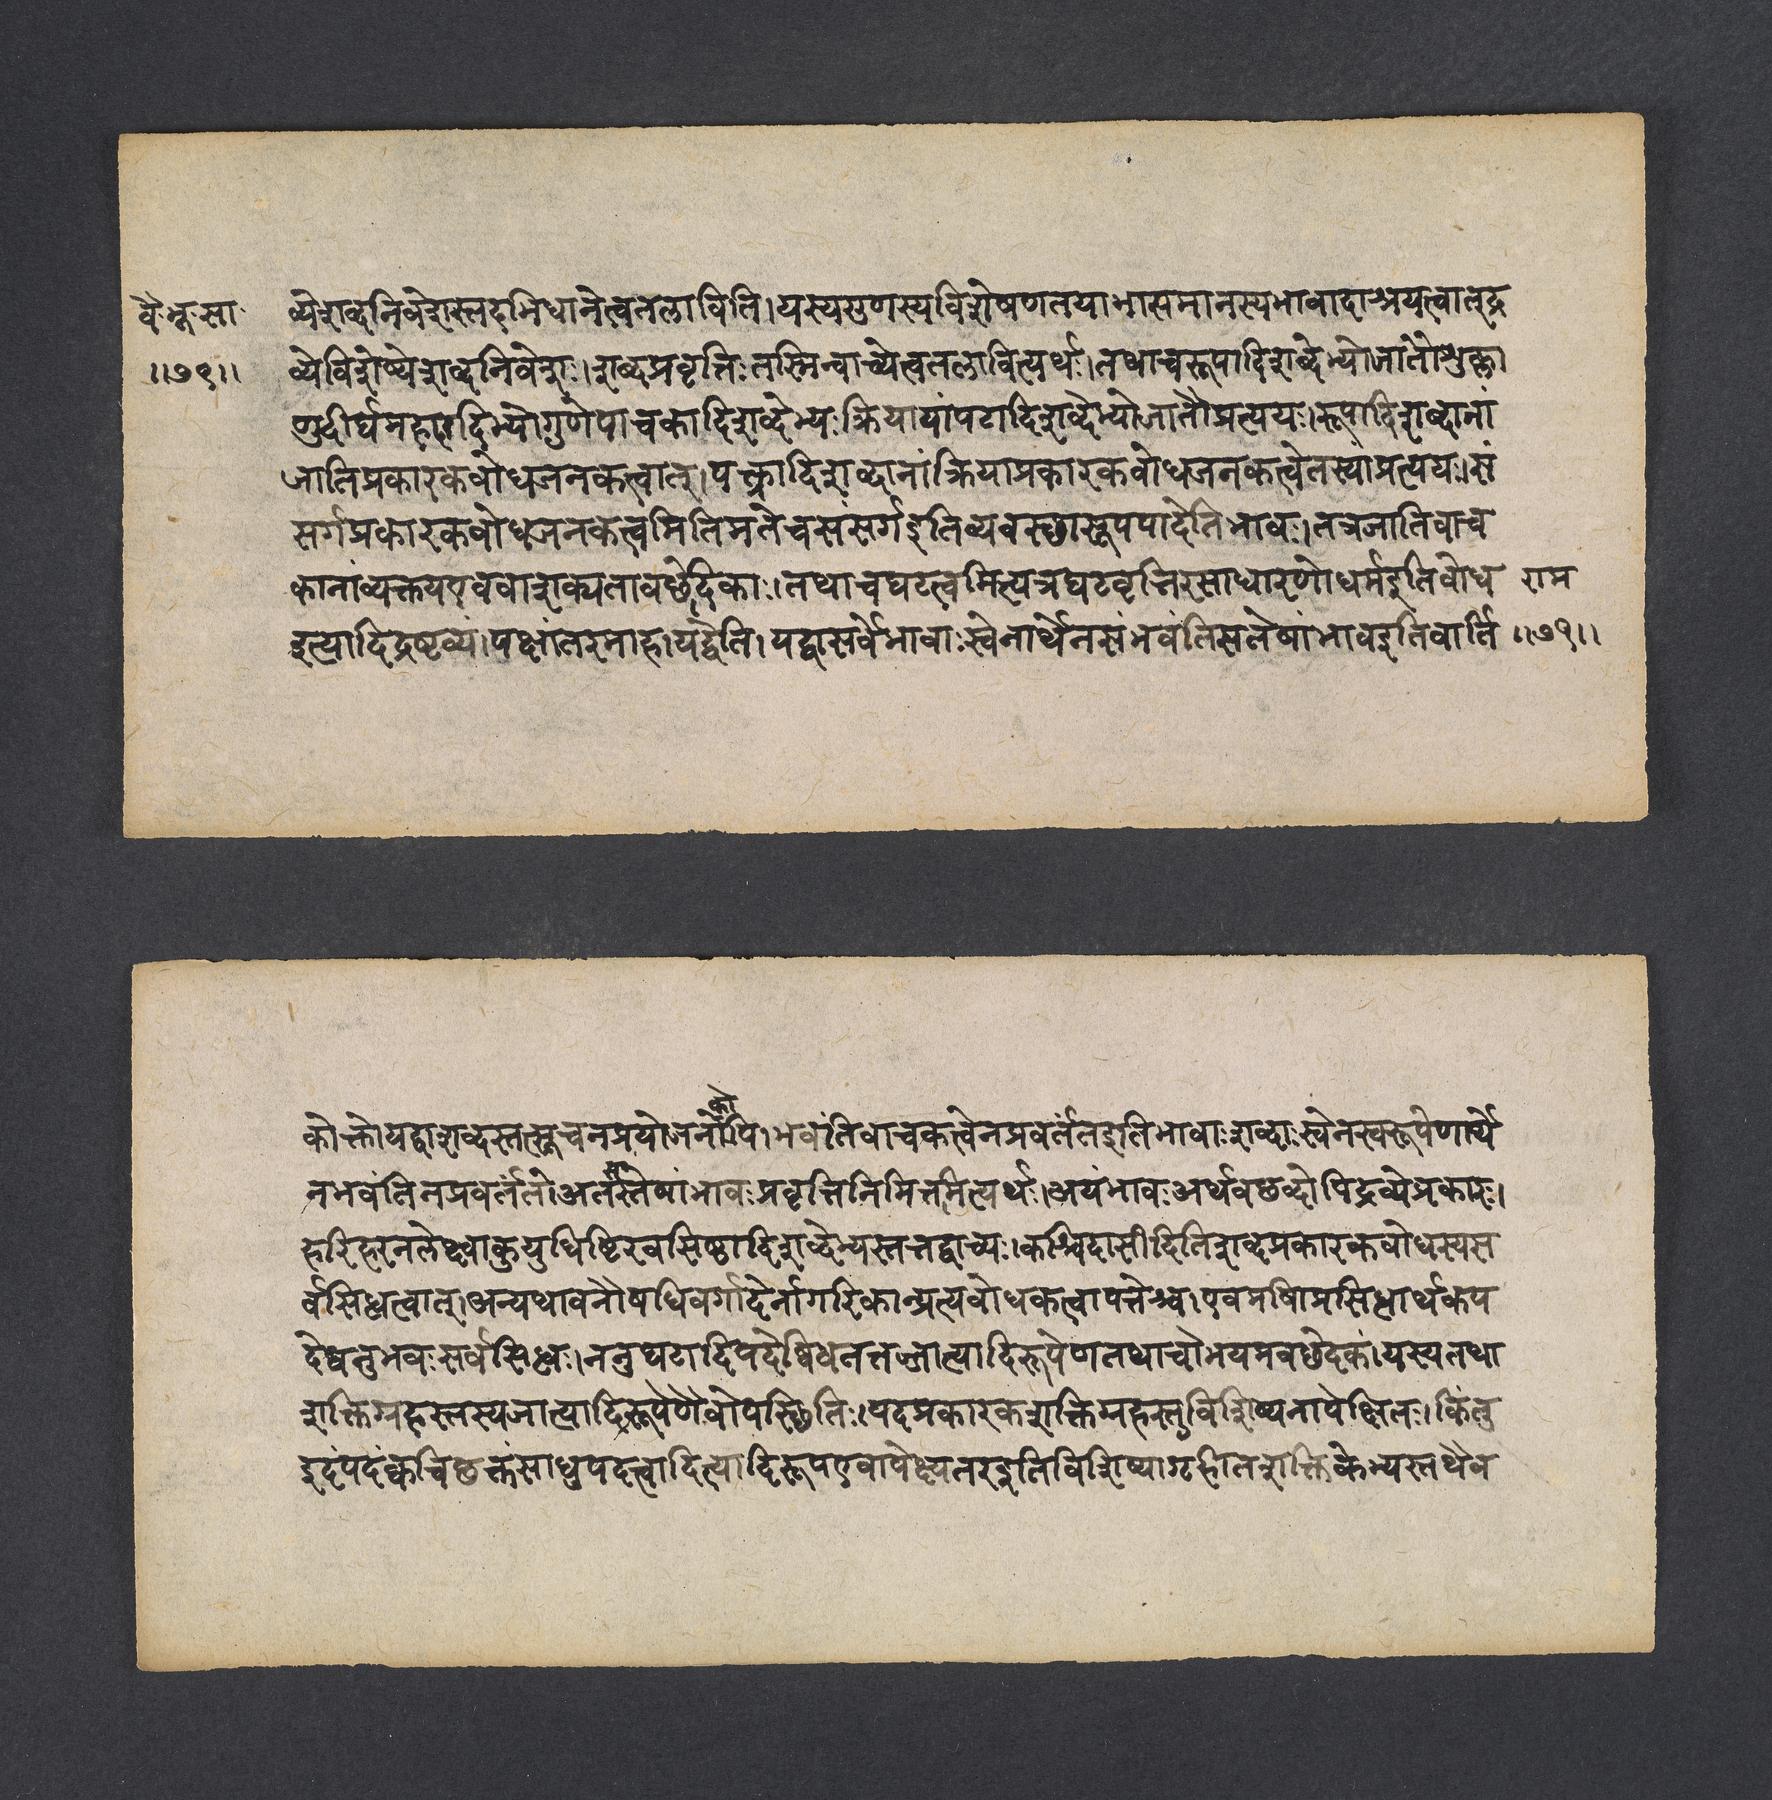 वै॰भू॰सा॰
॥७१॥
व्येशब्दनिवेशस्तदभिधानेत्वतलाविति।यस्यगुणस्यविशेषणतयाभासमानस्यभावादाश्रयत्वात्द्र
व्येविशेष्येशब्दनिवेशः।शब्दप्रवृत्तिःतस्मिन्वाच्येत्वतलावित्यर्थः।तथाचरूपादिशब्देभ्योजातौशुक्ला
णुदीर्घमहादादिभ्योगुणेपाचकादिशब्देभ्यःक्रियायांघटादिशब्देभ्योजातौप्रत्ययः।रूपादिशब्दानां
जातिप्रकारकबोधजनकत्वात्।पक्त्रादिशब्दानांक्रियाप्रकारकबोधजनकत्वेतस्याप्रत्ययः।सं
सर्गप्रकारकबोधजनकत्वंमितिमतेचसंसर्गइतिव्यवस्छासूपपादेतिभावः।तत्रजातिवाच
कानांव्यक्तयएववाशक्यतावछेदिकाः।तथाचघटत्वमित्यत्रघटवृत्तिरसाधारणोधर्मइतिबोध
इत्यादिद्रष्टव्यं।पक्षांतरमाह।यद्वेति।यद्वासर्वेभावाःस्वेनार्थेनसंभवंतिसतेषांभावइतिवार्ति
राम
॥७१॥
कोक्तोयद्वाशब्दस्तत्सूचनप्रयोजनोपि।भवंतिवाचकत्वेनप्रवर्ततइतिभावाःशब्दाःस्वेनस्वरूपेणार्थे
नभवंतिनप्रवर्ततोअतस्तेषांभावःप्रवृत्तिनिमित्तमित्यर्थः।अयंभावःअर्थवछब्दोपिद्रव्येप्रकारः।
हरिहरनलेक्ष्वाकुयुधिष्टिरवसिष्ठादिशब्देभ्यस्तत्तद्वाच्यः।कश्चिदासीदितिशब्दप्रकारकबोधस्यस
र्वसिद्धत्वात्।अन्यथावनौषधिवर्गादेर्नागरिकान्प्रत्यबोधकत्वापत्तेश्च।एवमषिाप्रसिद्धार्थकप
देष्वनुभवःसर्वसिद्धः।ननुघटादिपदेष्विधतत्तज्जात्यादिरूपेणतथाचोभयमवछेदकं।यस्यतथा
शक्तिग्रहस्तस्यजात्यादिरूपेणैवोपस्छितिः।पदप्रकारकशक्तिग्रहस्तुविशिष्यनापेक्षितः।किंतु
इदंपदंक्वचिछक्तंसाधुपदत्वादित्यादिरूपएवापेक्ष्यतरइतिविशिष्यागृहीतशक्तिकेभ्यस्तथैव